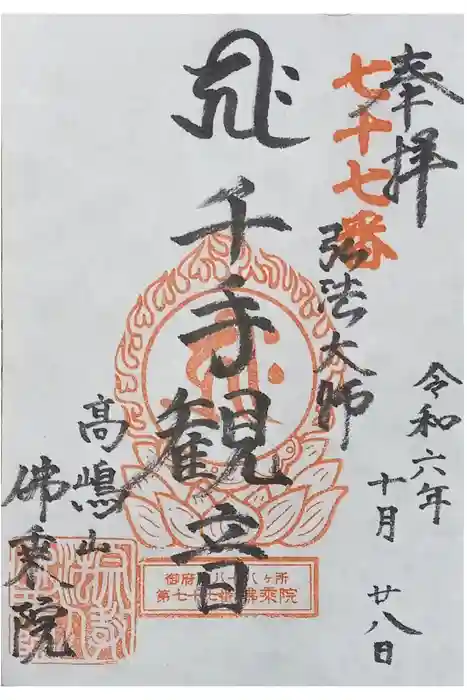 奉拝
七十七番
弘法大師
令和六年
十月 廿八日
千手観音
高嶋山
佛乗院
御府内八十八ヶ所
第七十七番佛乗院